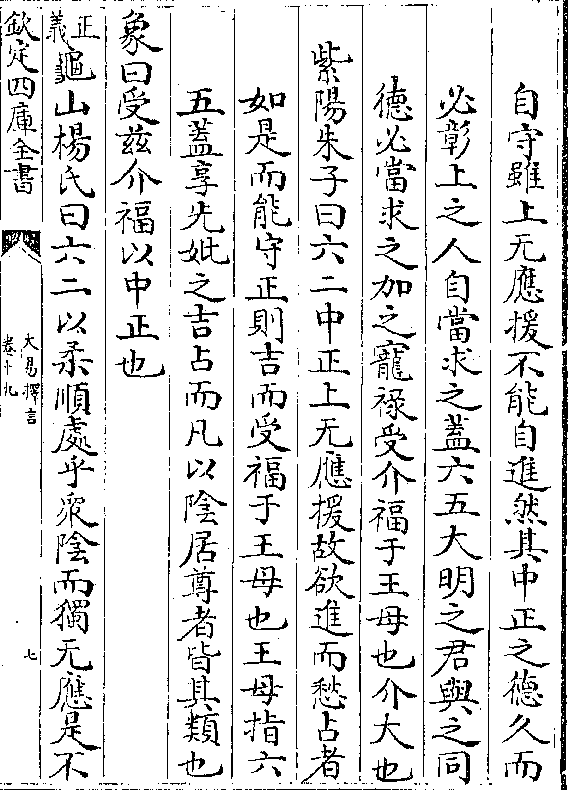 自守雖上无應援不能自進然其中正之德久而
必彰上之人自當求之蓋六五大明之君與之同
德必當求之加之寵祿受介福于王母也介大也
紫陽朱子曰六二中正上无應援故欲進而愁占者
如是而能守正則吉而受福于王母也王母指六
五蓋享先妣之吉占而凡以陰居尊者皆其類也
象曰受茲介福以中正也
正義
龜山楊氏曰六二以柔順處乎衆陰而獨无應是不
欽定四庫全書
大易擇言
卷十九
七